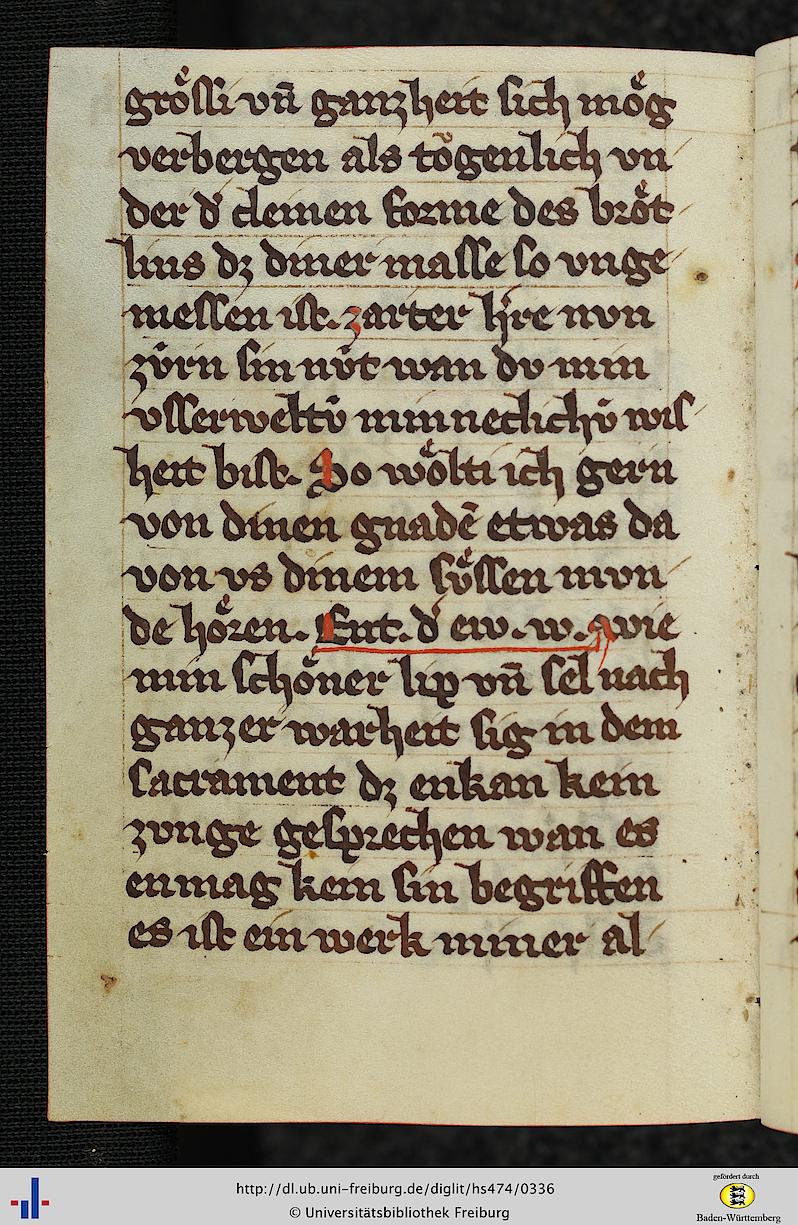 grôſſi vn̄ ganzheit ſich mǒg
verbergen als tǒgenlich vn
der d' cleinen forme des brôt
lins dz diner maſſe ſo vnge
meſſen iſt. zarter h're nvn
zv̂rn ſin nv̂t wan dv min
vſſerweltv̂ minneclichv̂ wiſ
heit biſt. So wôlti ich gern
von dinen gnadē etwas da
von vs dinem ſv̂ſſen mvn
de hôren. Ent. d' ew. w. wie
min ſchôner lip vn̄ ſel nach
ganzer warheit ſig in dem
ſacrament dz enkan kein
zvnge geſprechen wan es
enmag kein ſin begriffen
es iſt ein werk miner al
http://dl.ub.uni-freiburg.de/diglit/hs474/0336
© Universitätsbibliothek Freiburg
gefördert durch
Baden-Württemberg